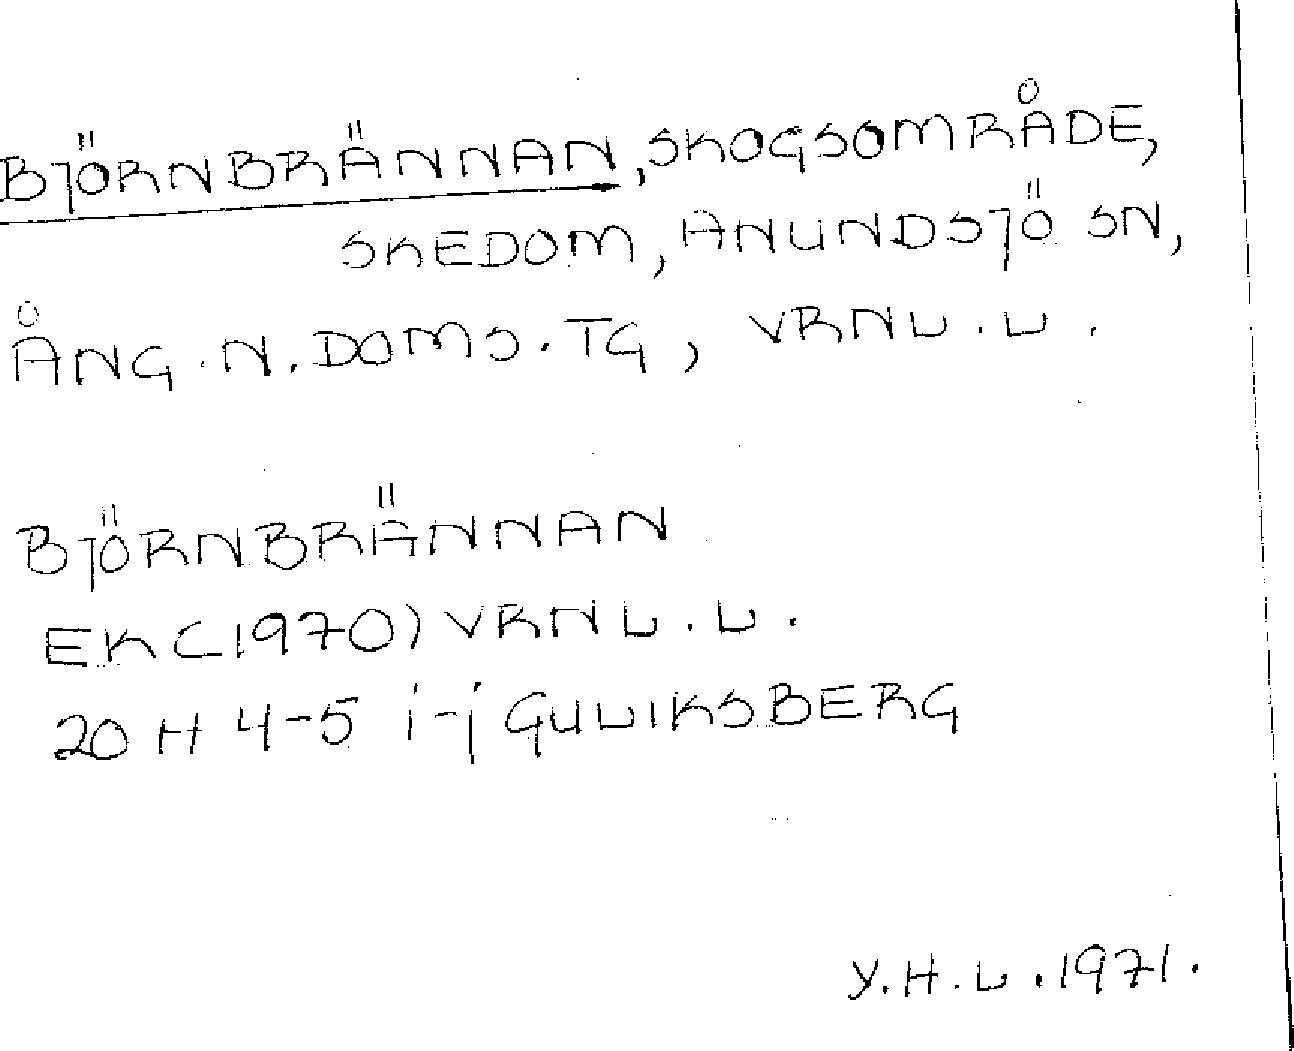 BJÖRNBRÄNNAN, SKOGSOMRÅDE,
SKEDOM, ANUNDSJÖ SN,
ÅNG. N. DOMS. TG, VRNL. L.
BJÖRNBRÄNNAN
EK (1970) VRNL. L.
20 H 4-5 i-j GULIKSBERG
Y. H. L. 1971.